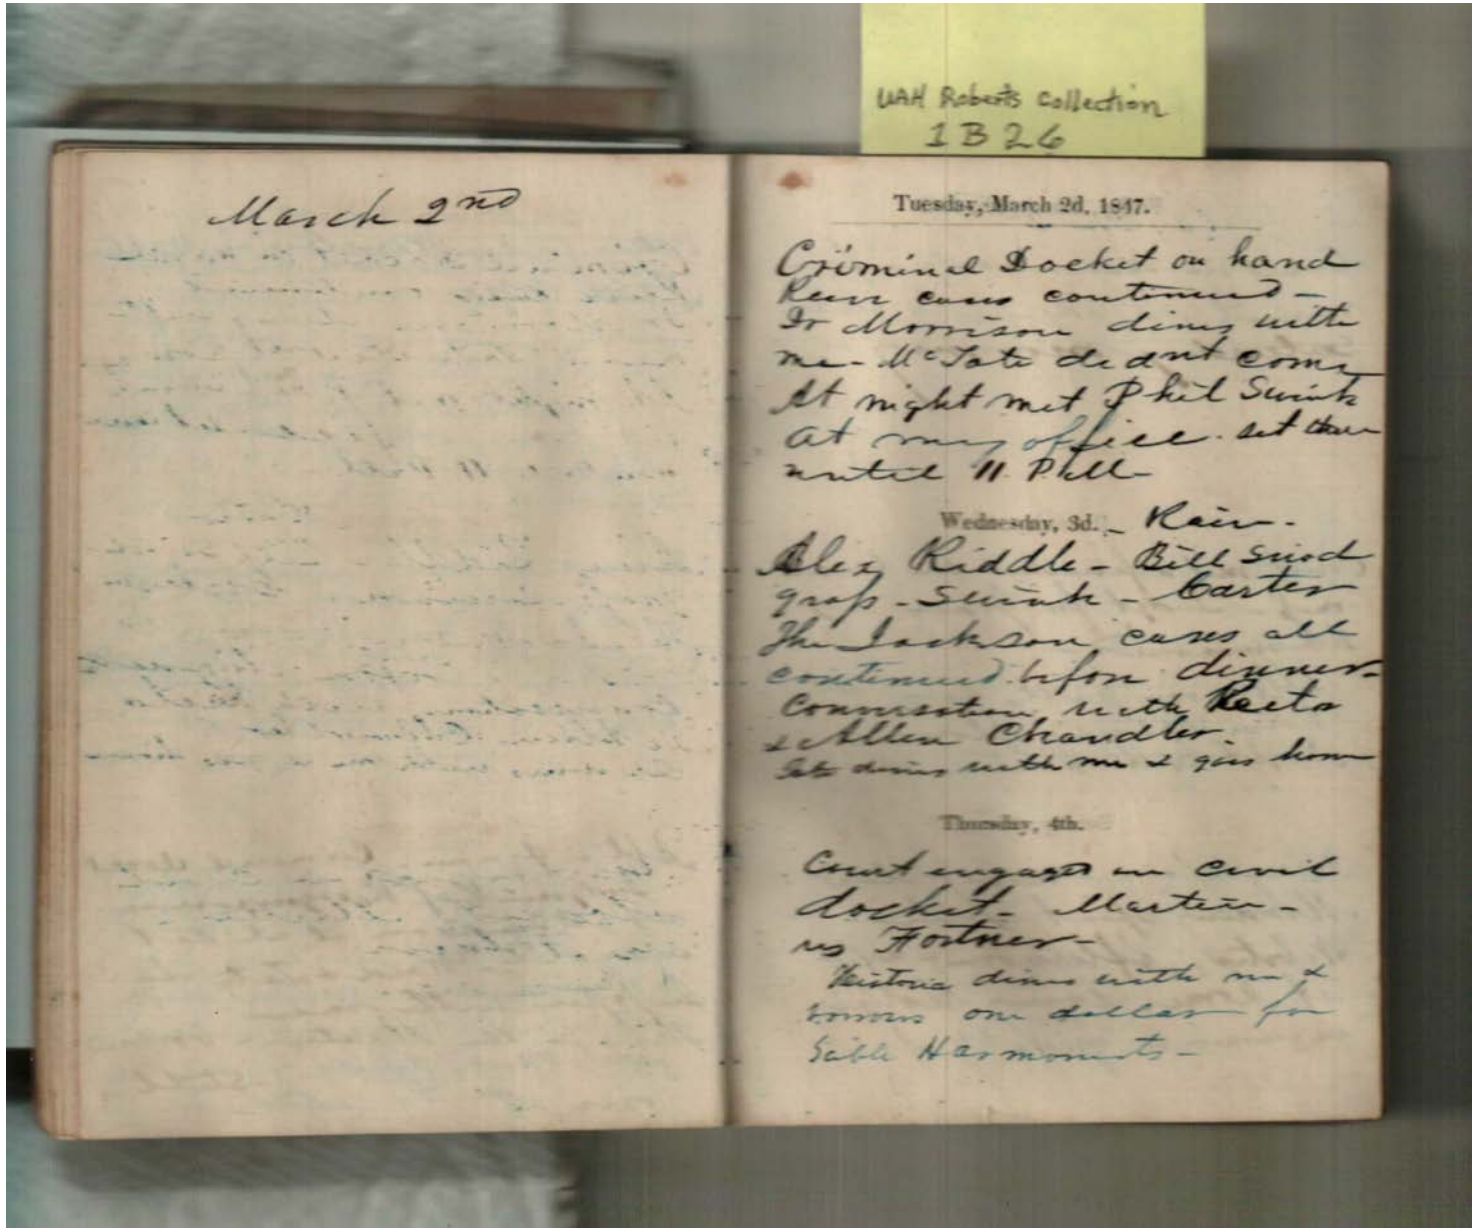 UAH Roberts Collection
1 B 26
March 2nd
Tuesday, March 2d, 1847.
Criminal Docket on hand
cases continued -
Dr Morrison dines with
me - McTate didnt come
At night met Phil Swink
at my office. set there
until 11 P M -
Wednesday, 3d. - Rain -
Alex Riddle - Bill Snod
grass - Swink - Carter
The Jackson cases all
continued before dinner -
Conversation with
& Allen Chandler.
dines with me & goes home
Thursday, 4th.
Court engaged on civil
docket - Martin -
vs Fortner -
dines with me &
borrows one dollar for
Sable Harmonists -